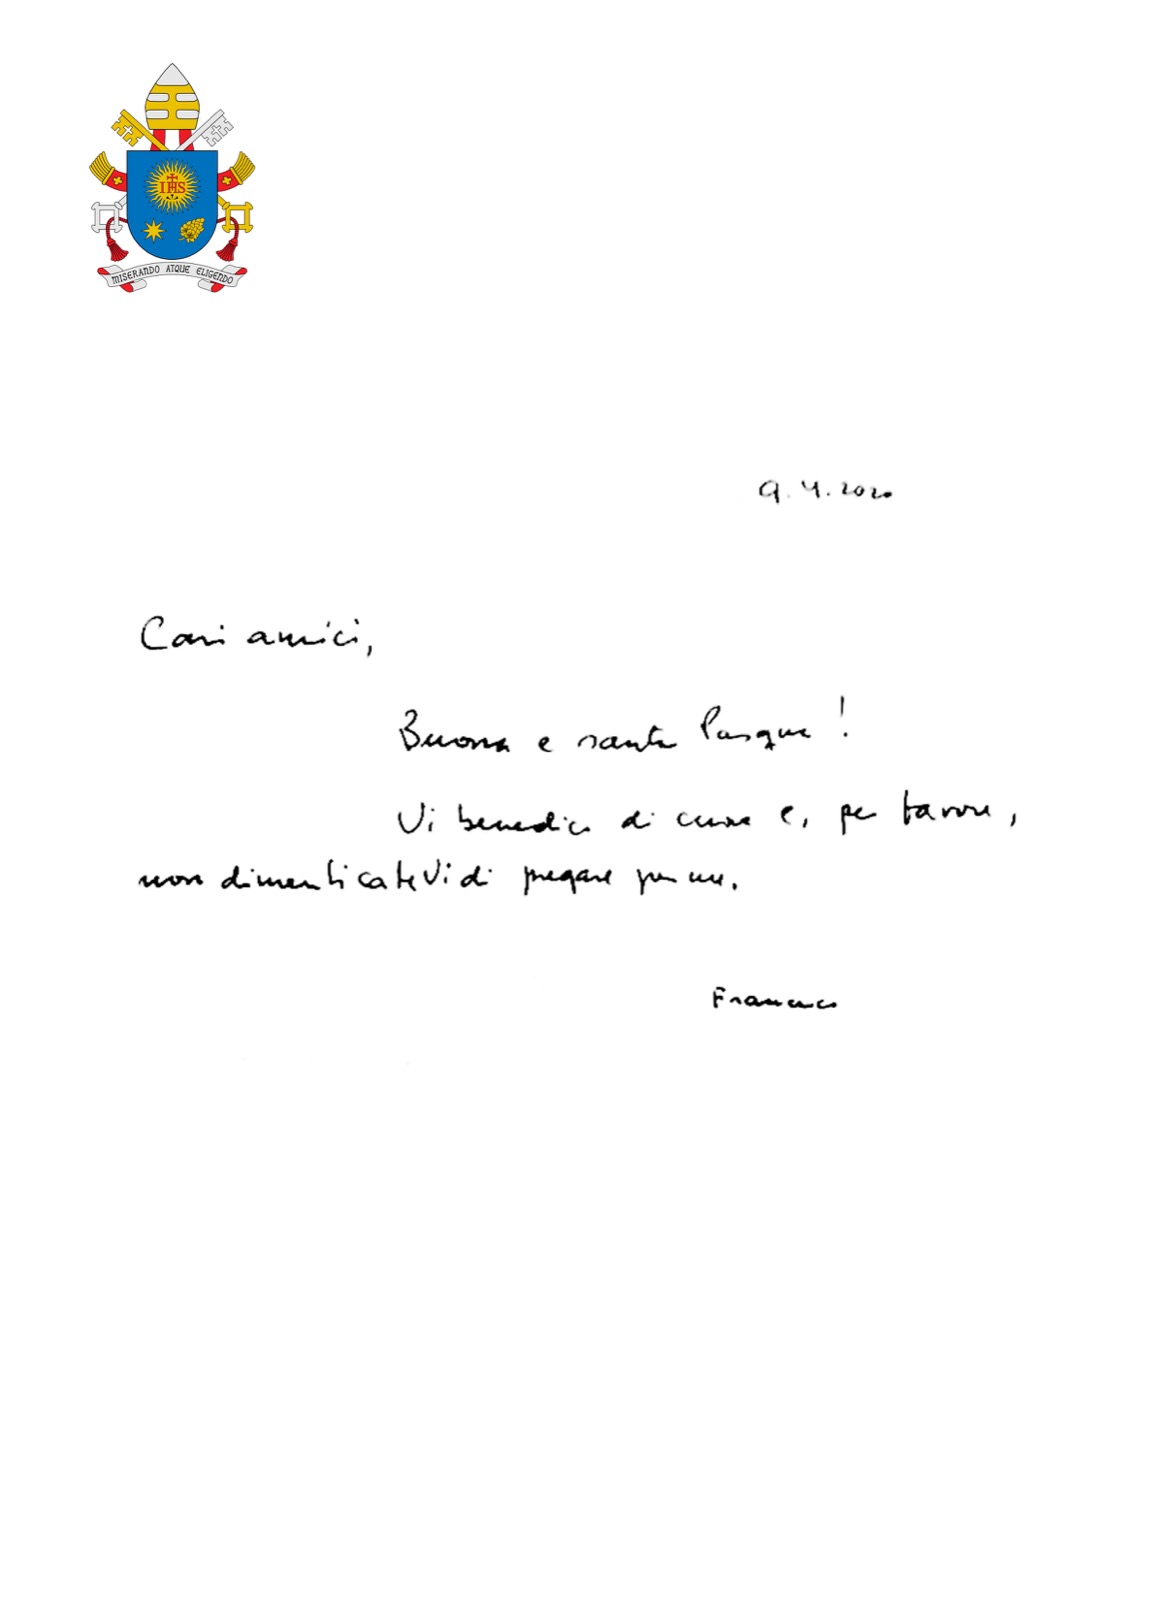 IHS
MISERANDO ATQUE ELIGENDO
9.4.2020
Cari amici,
Buona e santa Pasqua!
Vi benedico di cuore e, per favore,
non dimenticatevi di pregare per me.
Francesco